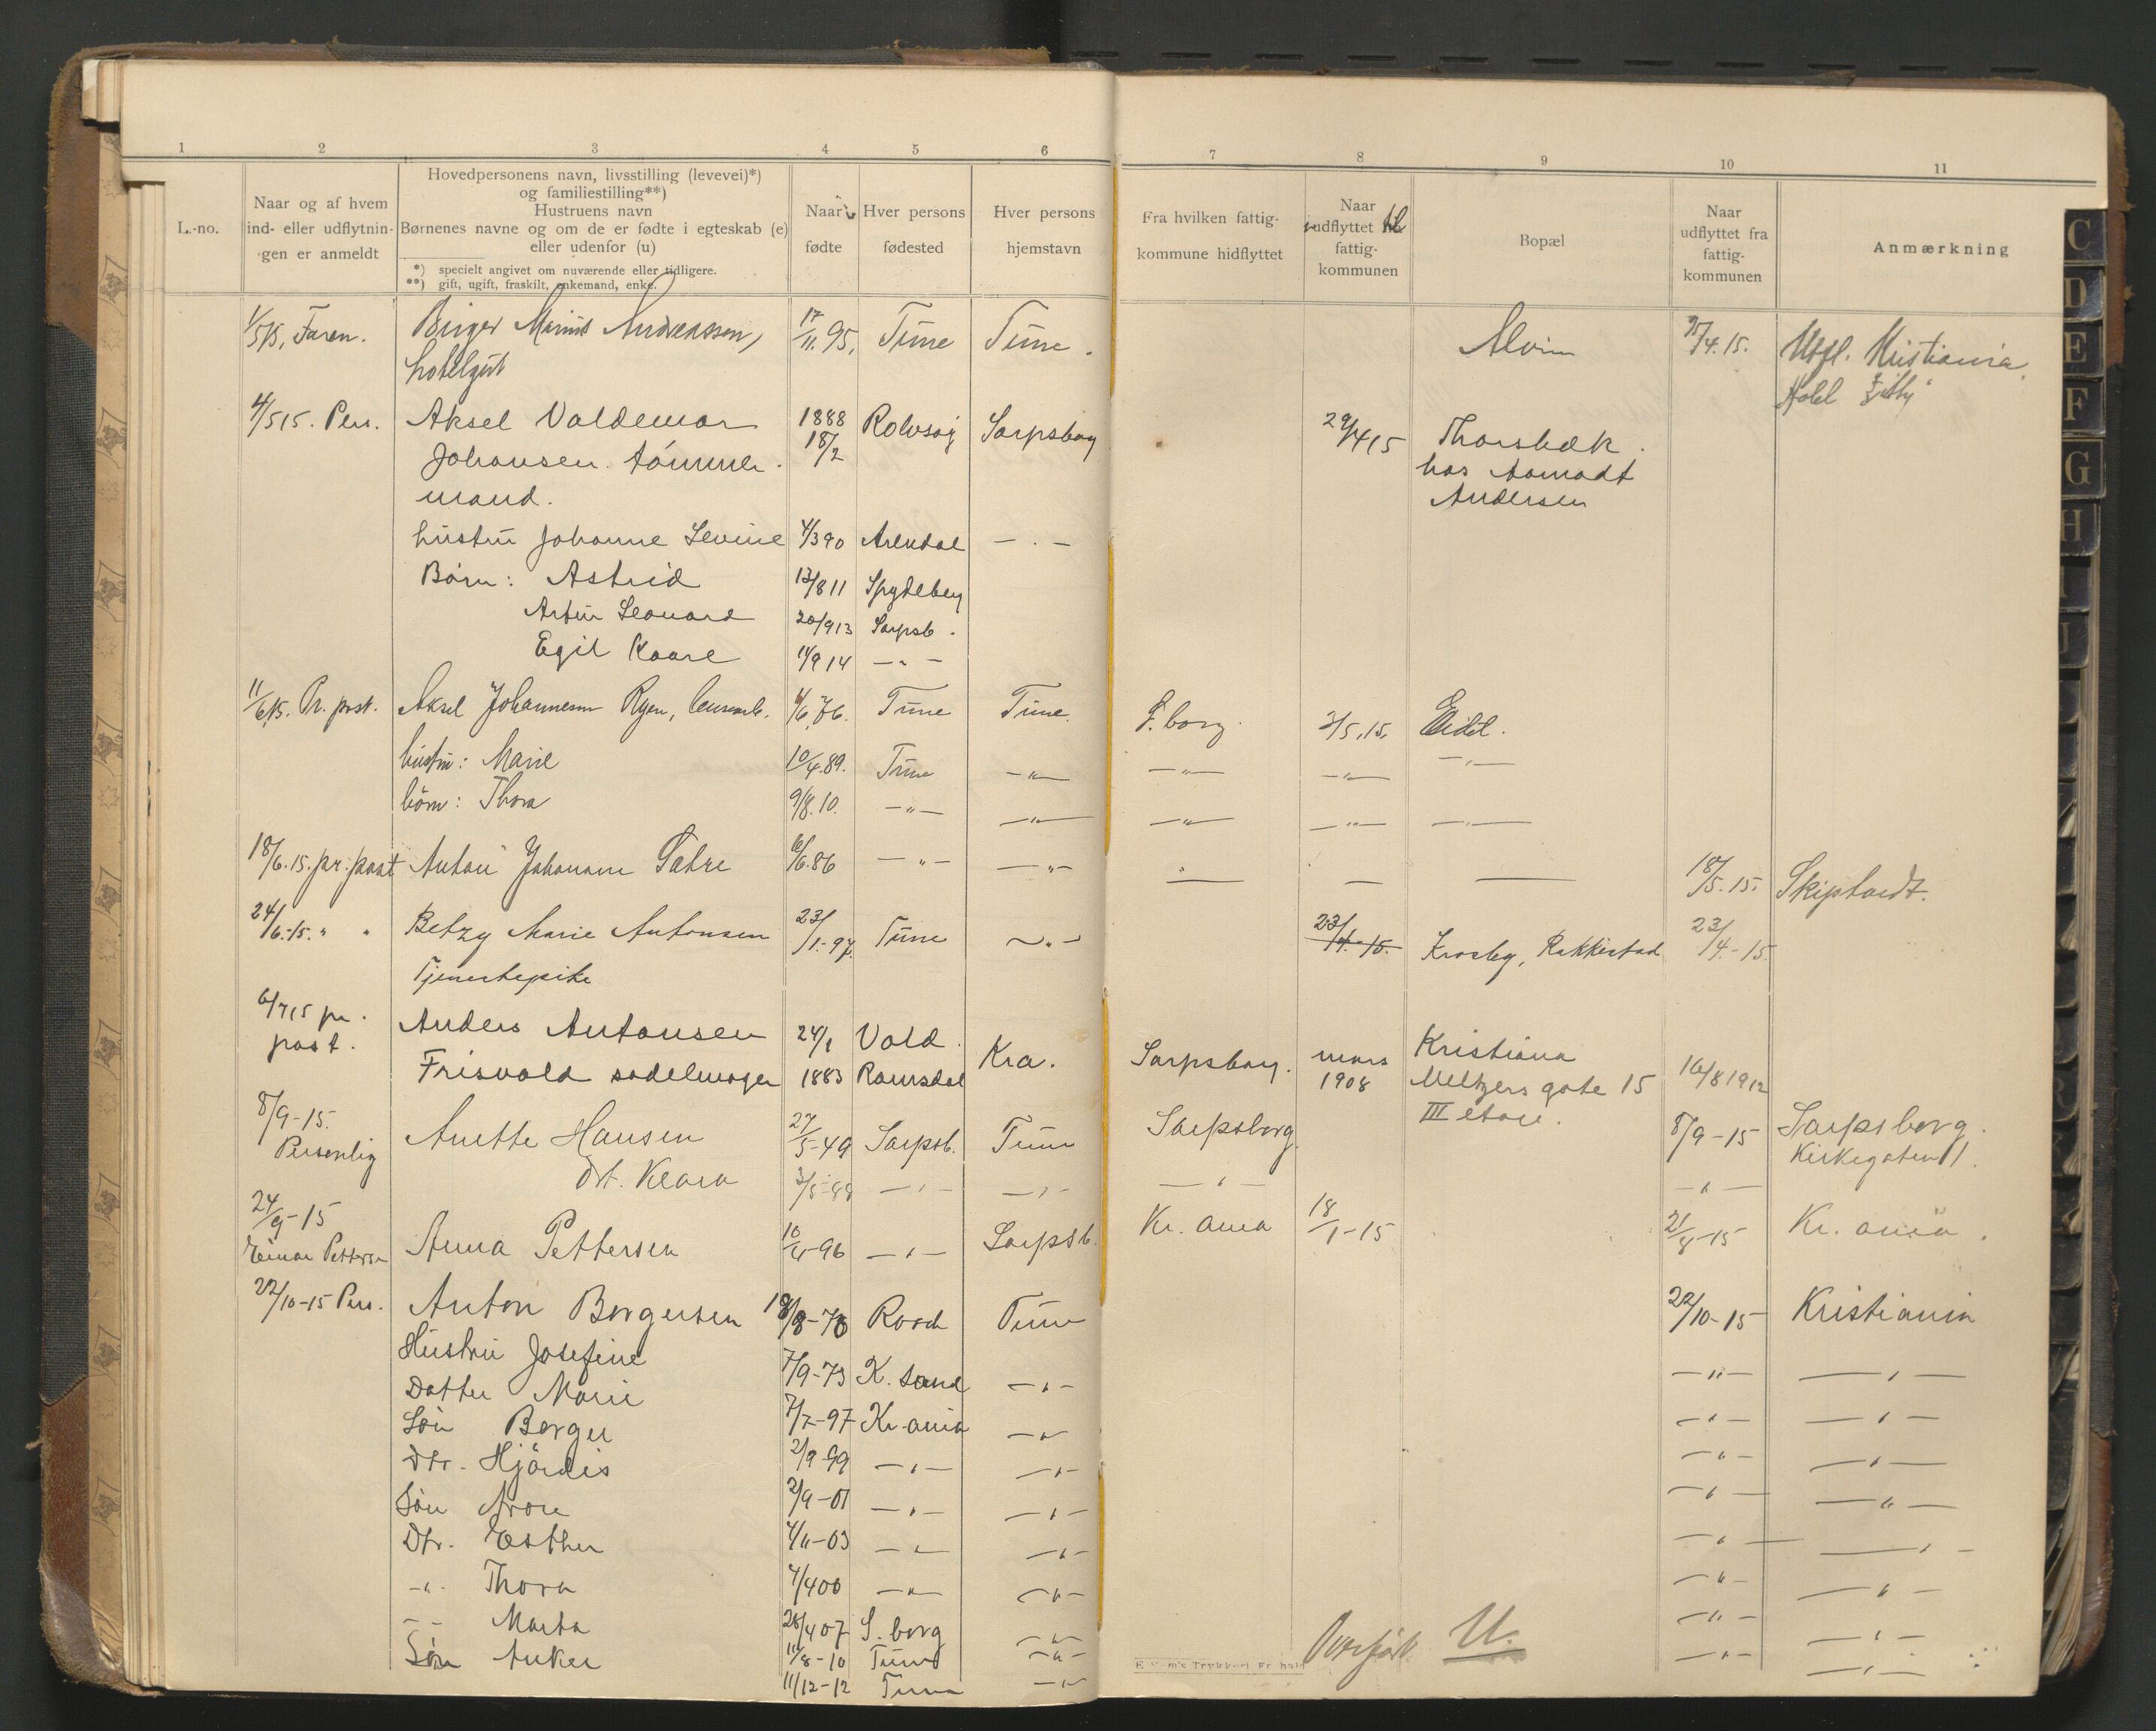 1 2 3 4 5 6 7 8 9 10 11
L.-no.
Naar og af hvem
ind- eller udflytnin-
gen er anmeldt
Hovedpersonens navn, livsstilling (levevei)*)
og familiestilling**)
Hustruens navn
Børnenes navne og om de er fødte i egteskab (e)
eller udenfor (u)
*) specielt angivet om nuværende eller tidligere.
**) gift, ugift, fraskilt, enkemand, enke.
Naar
fødte
Hver persons
fødested
Hver persons
hjemstavn
Fra hvilken fattig-
kommune hidflyttet
Naar
indflyttet til
fattig-
kommunen
Bopæl
Naar
udflyttet fra
fattig-
kommunen
Anmærkning
1/5 15. Faren. Birger Marius Andreassen, 17/11.95. Tune Tune. Alvim 25/4.15. Utfl. Kristiania
hotelgut Hotel
4/5 15. Pers. Aksel Valdemar 1888 Rolvsøy Sarpsborg 29/4 15 Thorsbæk.
Johansen. tømmer- 18/2 hos Aamodt
mand. Andersen
hustru Johanne Levine 4/3 90 Arendal — . —
Børn: Astrid 13/8 11 Spydeberg
Artur Leonard 20/9 13 Sarpsb.
Egil Kaare 14/9 14 — " —
11/6.15. Pr. post. Aksel Johannesen Ryen, 4/6.76. Tune Tune. S.borg. 3/5.15. Eidet.
hustru: Marie 10/4.89. Tune — " — — " — — " — — " —
børn: Thora 9/8.10. — " — — " — — " — — " — — " —
18/6.15. pr. post Anton Johannes Sætre 16/6.86 — " — — " — — — — 18/5.15. Skiptvedt.
24/6.-15. " " Betzy Marie Antonsen 23/1.-97. Tune — " — 23/4.-15. Krosby, Rakkestad 23/4.-15.
Tjenestepike
6/7 15 pr. Anders Antonsen 24/1 Vold. Kra. Sarpsborg. mars Kristiana 16/8 1912
post. Frisvold sadelmager 1883 Romsdal 1908 Meltzers gate 15
III etage.
8/9-15. Anette Hansen 27/5-49 Sarpsb. Tune Sarpsborg. 8/9-15 Sarpsborg.
Personlig Kirkegaten 11.
Dt. Klara 3/5-88 — " — — " — — " — — " —
24/9-15
Einar Pettersen Anna Pettersen 10/4-96 — " — Sarpsb. Kr. ania 18/1-15 21/8-15 Kr. ania.
22/10-15 Pers. Anton Borgersen 18/8-70 Raade Tune 22/10-15 Kristiania
Hustru Josefine 7/9-73 K. sand — " — — " — — " —
Datter Marie 7/7-97 Kr. ania — " — — " — — " —
Søn Borger 2/9-99 — " — — " — — " — — " —
Dtr. Hjördis 2/9-01 — " — — " — — " — — " —
Søn Arne 4/11-03 — " — — " — — " — — " —
Dtr. Esther 4/4 06 — " — — " — — " — — " —
— " — Thora 26/4 07 S. borg — " — — " — — " —
— " — Marta 11/8-10 Tune — " — — " — — " —
Søn Anker 11/12-12 Tune — " —
Overført U.
C D E F G H I J